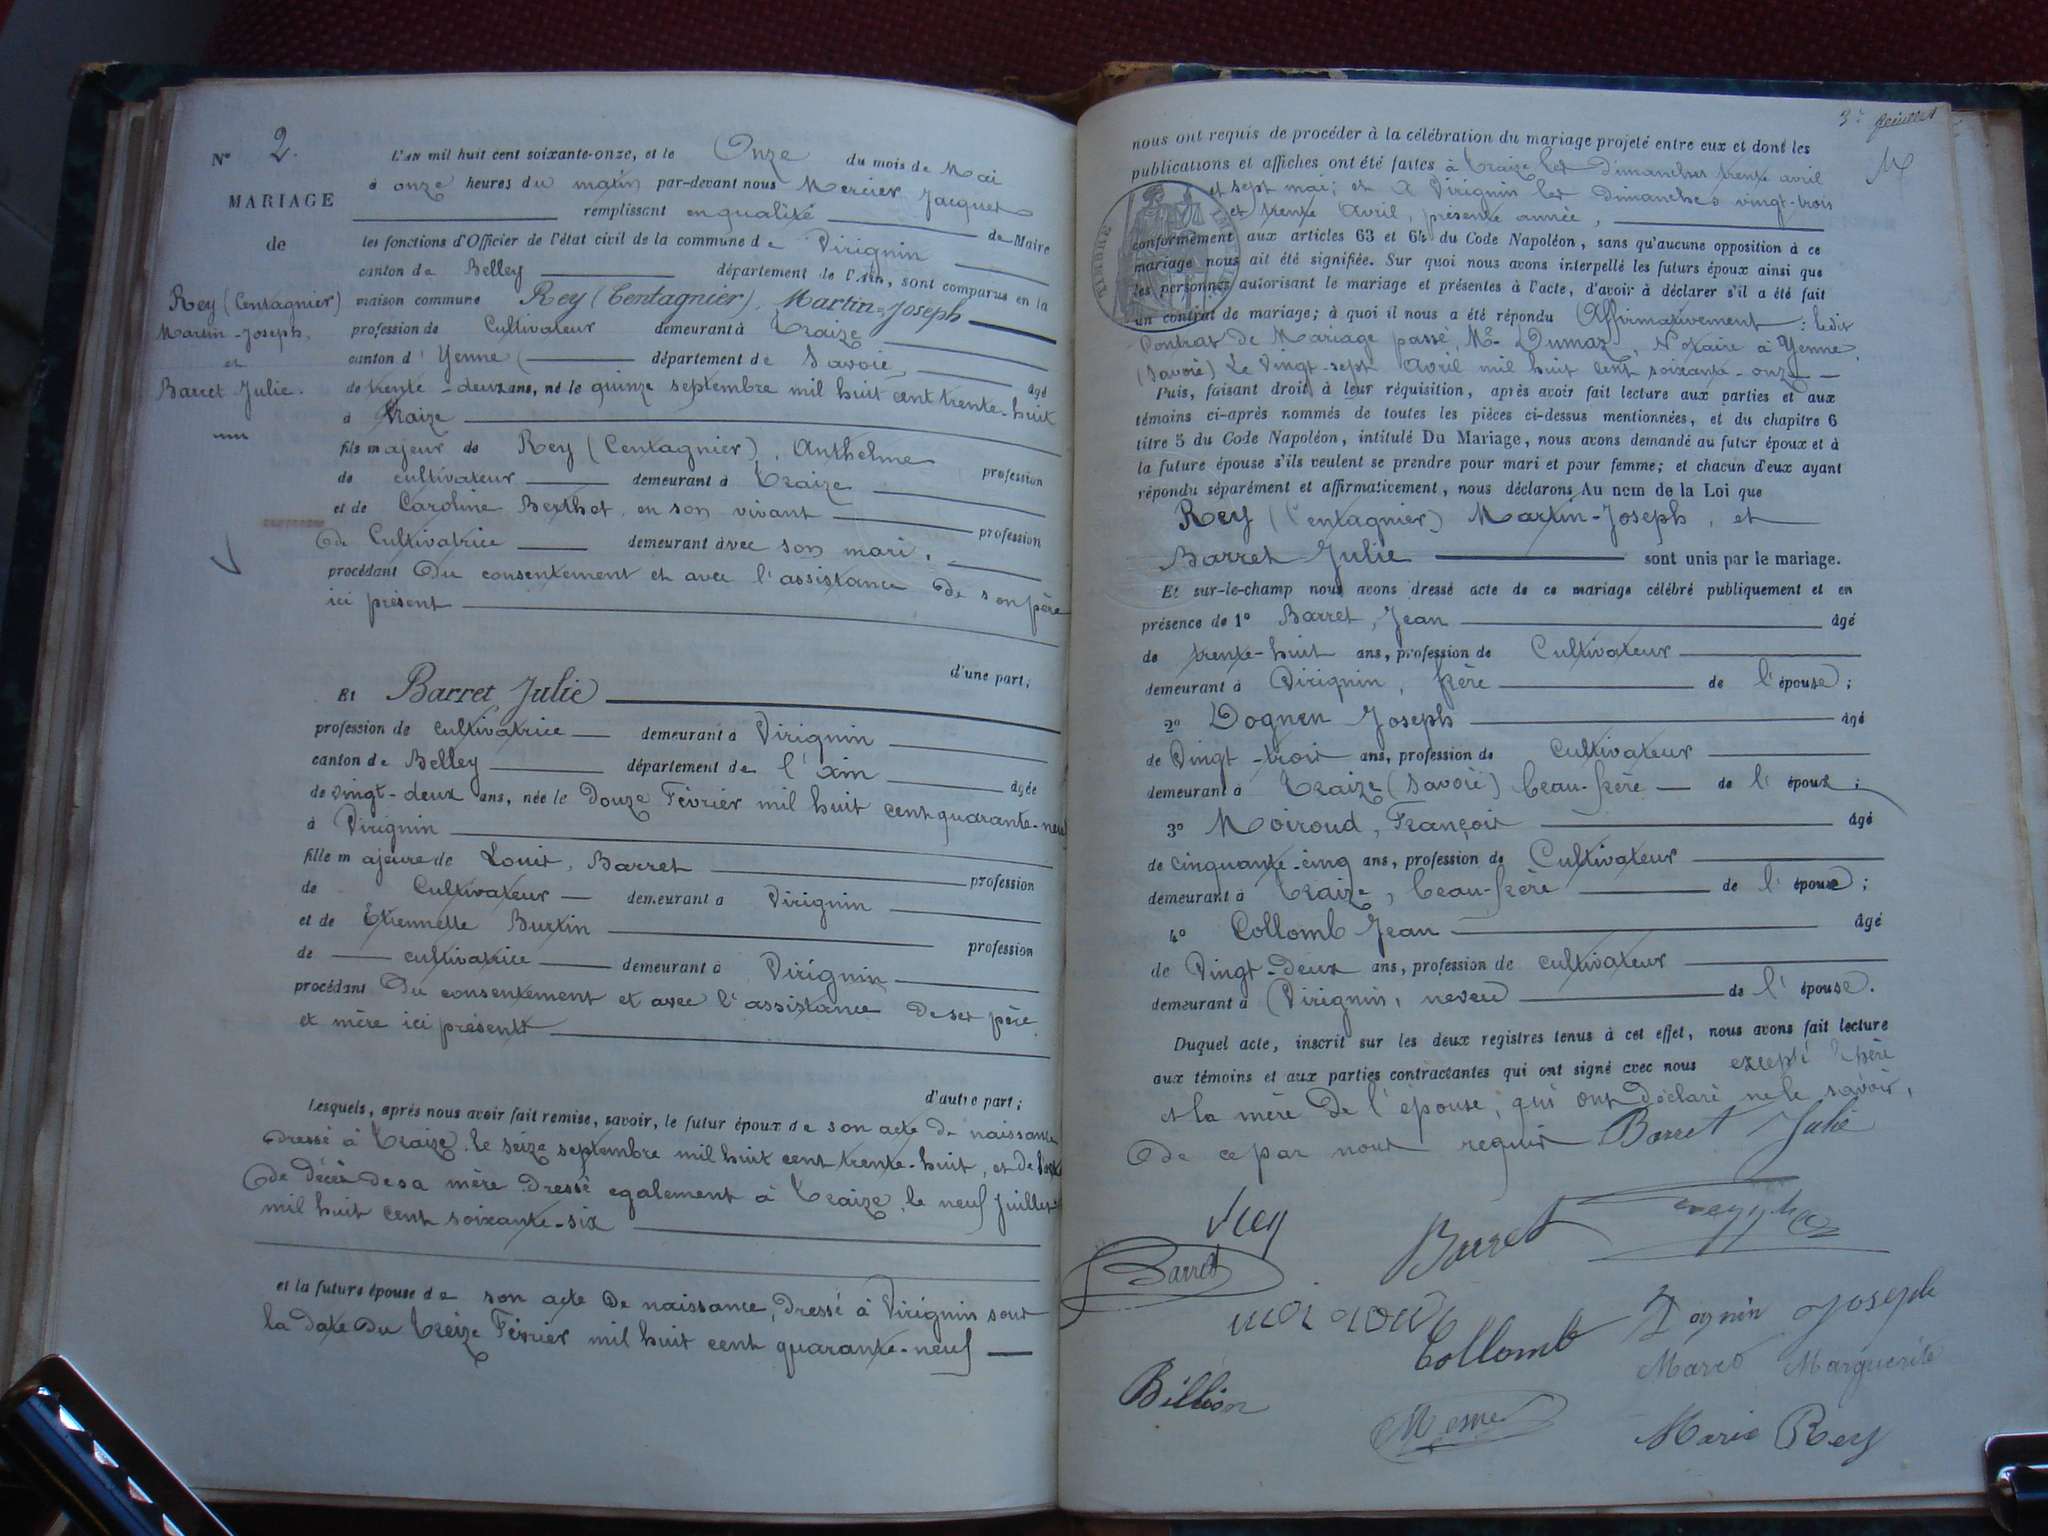 N° 2.
MARIAGE
de
Rey (Centagnier)
Martin-Joseph,
et
Barret Julie.
L'AN mil huit cent soixante-onze, et le Onze du mois de Mai
à onze heures du matin par-devant nous Mercier Jacques
remplissant en qualité de Maire
les fonctions d'Officier de l'état civil de la commune de Virignin
canton de Belley département de l'Ain, sont comparus en la
maison commune Rey (Centagnier), Martin-Joseph
profession de Cultivateur demeurant à Traize
canton d'Yenne département de Savoie âgé
de trente-deux ans, né le quinze septembre mil huit cent trente-huit
à Traize
fils majeur de Rey (Centagnier), Anthelme profession
de cultivateur demeurant à Traize
et de Caroline Berthet, en son vivant profession
de Cultivatrice demeurant avec son mari,
procédant du consentement et avec l'assistance de son père
ici présent
d'une part;
Et Barret Julie
profession de cultivatrice demeurant à Virignin
canton de Belley département de l'Ain âgée
de vingt-deux ans, née le Douze Février mil huit cent quarante-neuf
à Virignin
fille majeure de Louis, Barret profession
de Cultivateur demeurant à Virignin
et de Etiennette Burtin profession
de cultivatrice demeurant à Virignin
procédant Du consentement et avec l'assistance de ses père
et mère ici présents
d'autre part;
Lesquels, après nous avoir fait remise, savoir, le futur époux de son acte de naissance
dressé à Traize, le seize septembre mil huit cent trente-huit, et de l'acte
de décès de sa mère dressé également à Traize, le neuf juillet
mil huit cent soixante-six
et la future épouse de son acte de naissance, dressé à Virignin sous
la date du treize Février mil huit cent quarante-neuf
3e feuillet
M
nous ont requis de procéder à la célébration du mariage projeté entre eux et dont les
publications et affiches ont été faites à Traize les Dimanches trente avril
et sept mai; et à Virignin les Dimanches vingt-trois
et trente Avril, présente année,
conformément aux articles 63 et 64 du Code Napoléon, sans qu'aucune opposition à ce
mariage nous ait été signifiée. Sur quoi nous avons interpellé les futurs époux ainsi que
les personnes autorisant le mariage et présentes à l'acte, d'avoir à déclarer s'il a été fait
un contrat de mariage; à quoi il nous a été répondu Affirmativement: ledit
Contrat de Mariage passé, Me Dumaz, Notaire à Yenne,
(Savoie) Le Vingt-sept Avril mil huit cent soixante-onze
Puis, faisant droit à leur réquisition, après avoir fait lecture aux parties et aux
témoins ci-après nommés de toutes les pièces ci-dessus mentionnées, et du chapitre 6
titre 5 du Code Napoléon, intitulé Du Mariage, nous avons demandé au futur époux et à
la future épouse s'ils veulent se prendre pour mari et pour femme; et chacun d'eux ayant
répondu séparément et affirmativement, nous déclarons Au nom de la Loi que
Rey (Centagnier) Martin-Joseph, et
Barret Julie sont unis par le mariage.
Et sur-le-champ nous avons dressé acte de ce mariage célébré publiquement et en
présence de 1° Barret, Jean âgé
de trente-huit ans, profession de Cultivateur
demeurant à Virignin, frère de l'épouse;
2° Dognen Joseph âgé
de Vingt-trois ans, profession de Cultivateur
demeurant à Traize (Savoie) beau-frère de l'époux;
3° Moiroud, François âgé
de cinquante-cinq ans, profession de Cultivateur
demeurant à Traize, beau-frère de l'épouse;
4° Collomb Jean âgé
de Vingt-deux ans, profession de cultivateur
demeurant à Virignin, neveu de l'épouse.
Duquel acte, inscrit sur les deux registres tenus à cet effet, nous avons fait lecture
aux témoins et aux parties contractantes qui ont signé avec nous excepté le père
et la mère de l'épouse, qui ont déclaré ne le savoir,
de ce par nous requis Barret Julie
Rey
Barret
Barret
moiroud
Collomb
Dognin Joseph
Maret Marguerite
Billion
Marie Rey